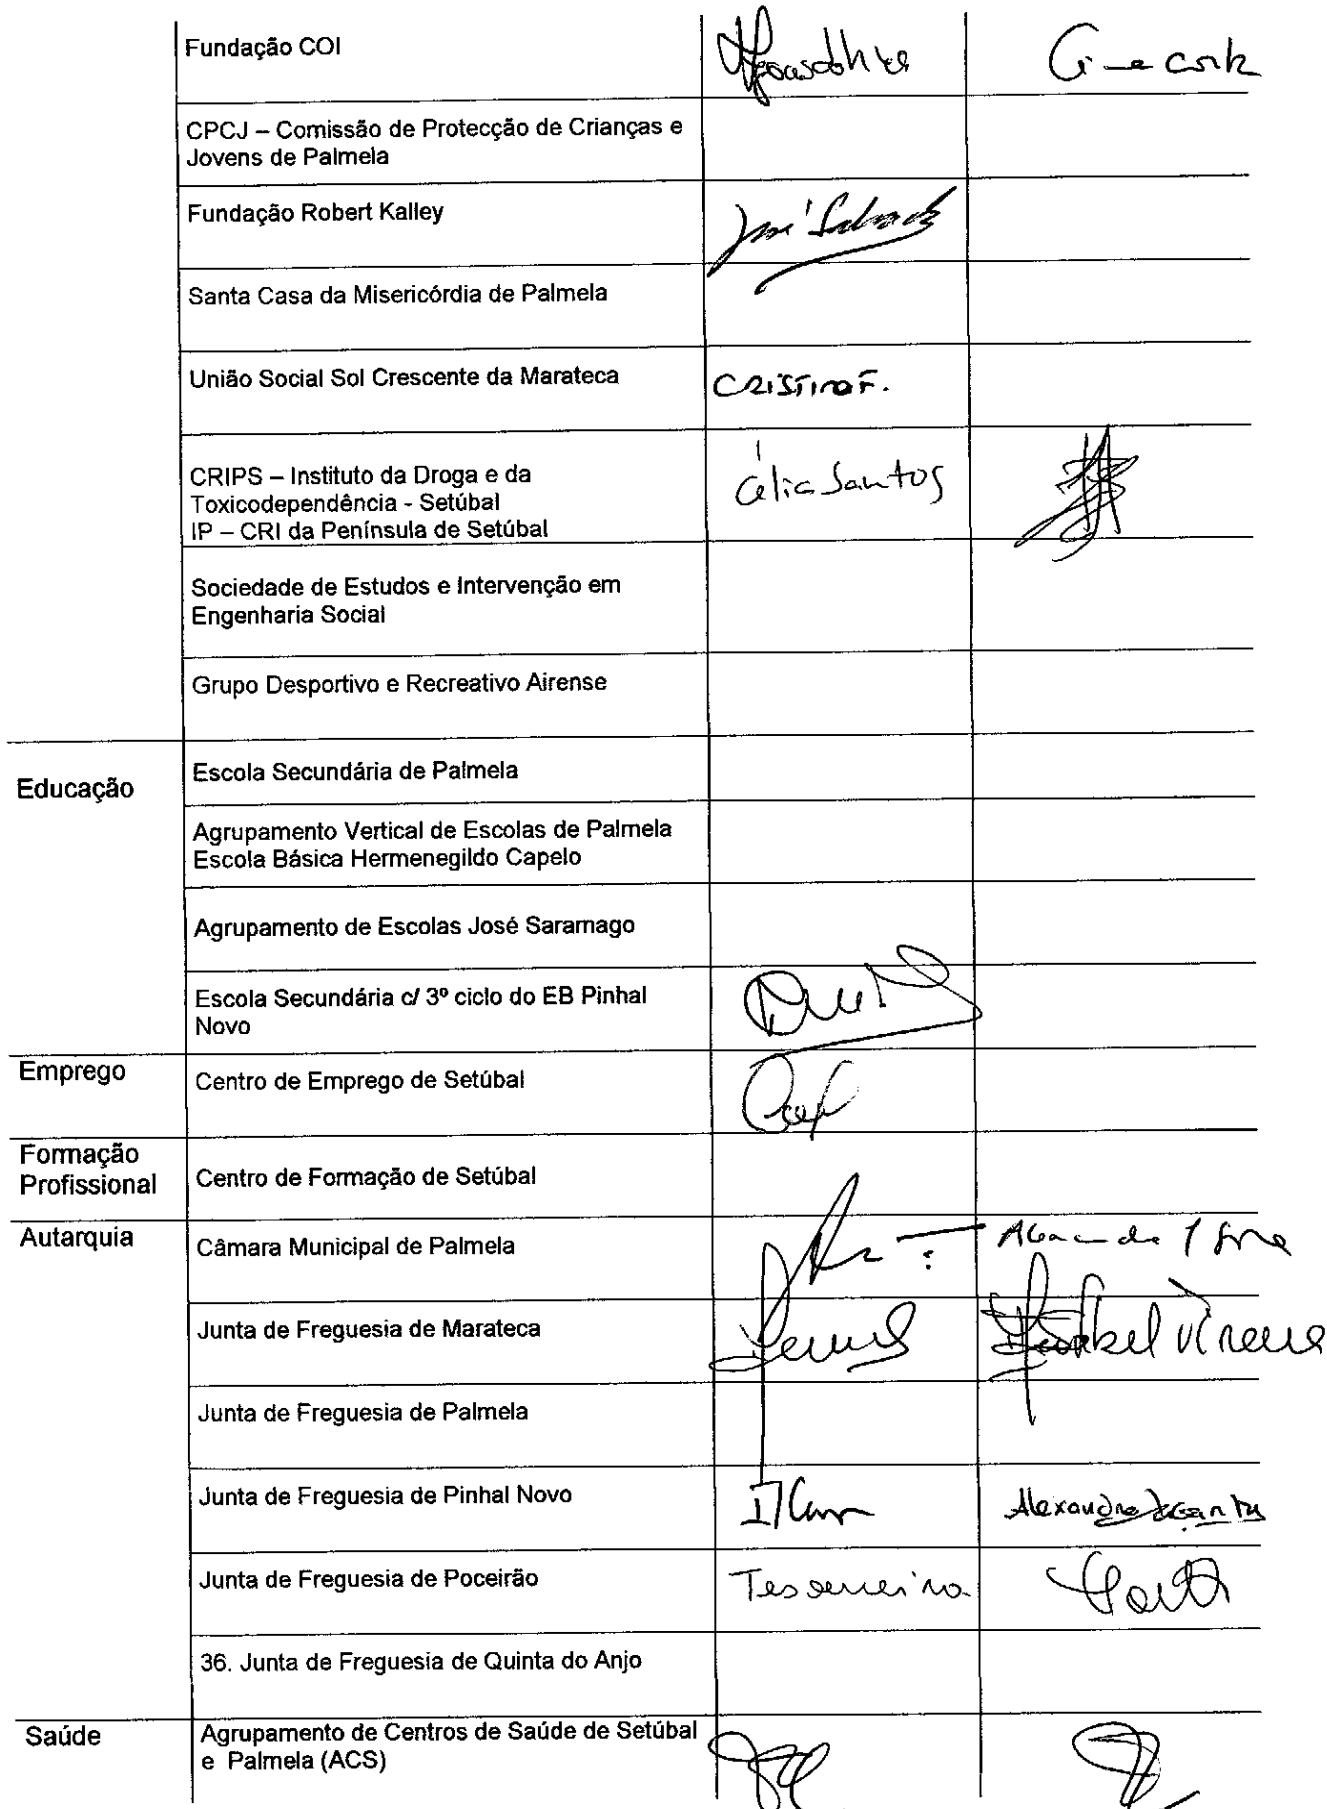 Fundação COI
CPCJ – Comissão de Protecção de Crianças e
Jovens de Palmela
Fundação Robert Kalley
José
Santa Casa da Misericórdia de Palmela
União Social Sol Crescente da Marateca CRISTINA F.
CRIPS – Instituto da Droga e da
Toxicodependência - Setúbal
IP – CRI da Península de Setúbal
Célia Santos
Sociedade de Estudos e Intervenção em
Engenharia Social
Grupo Desportivo e Recreativo Airense
Educação
Escola Secundária de Palmela
Agrupamento Vertical de Escolas de Palmela
Escola Básica Hermenegildo Capelo
Agrupamento de Escolas José Saramago
Escola Secundária c/ 3º ciclo do EB Pinhal
Novo
Emprego
Centro de Emprego de Setúbal
Formação
Profissional
Centro de Formação de Setúbal
Autarquia
Câmara Municipal de Palmela
Junta de Freguesia de Marateca
Junta de Freguesia de Palmela
Junta de Freguesia de Pinhal Novo
Junta de Freguesia de Poceirão Tesoureira
36. Junta de Freguesia de Quinta do Anjo
Saúde
Agrupamento de Centros de Saúde de Setúbal
e Palmela (ACS)